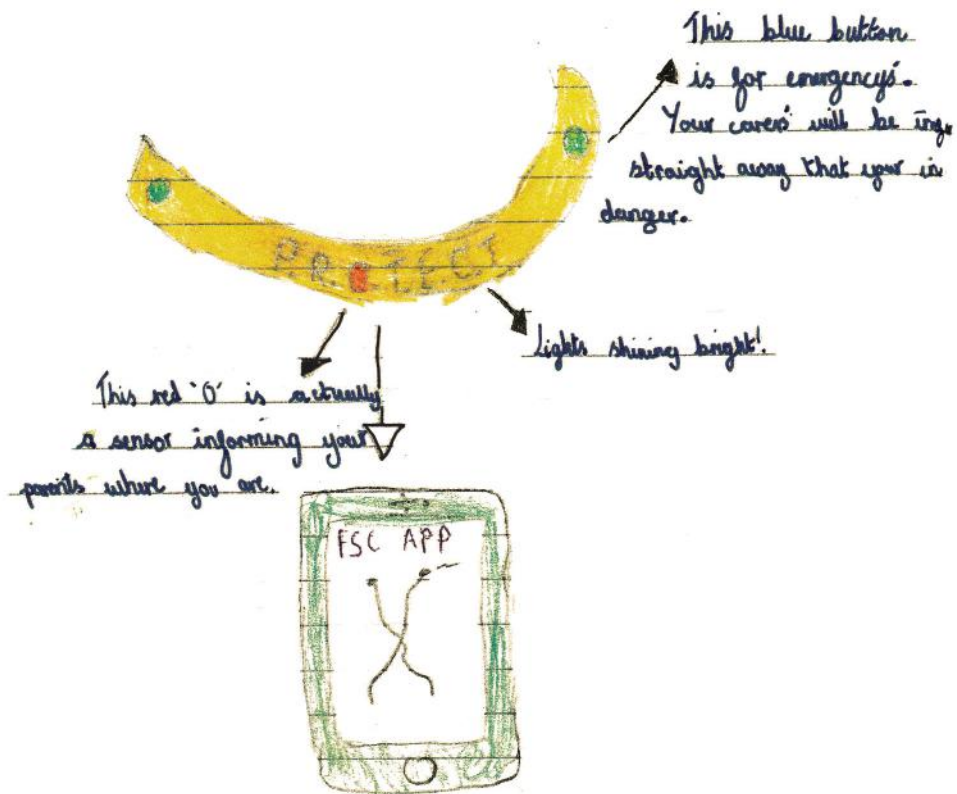 This blue button
is for emergency's.
Your carers' will be ing
straight away that your in
danger.
PROTECT
Lights shining bright!
This red 'O' is actually
a sensor informing your
parents where you are.
FSC APP